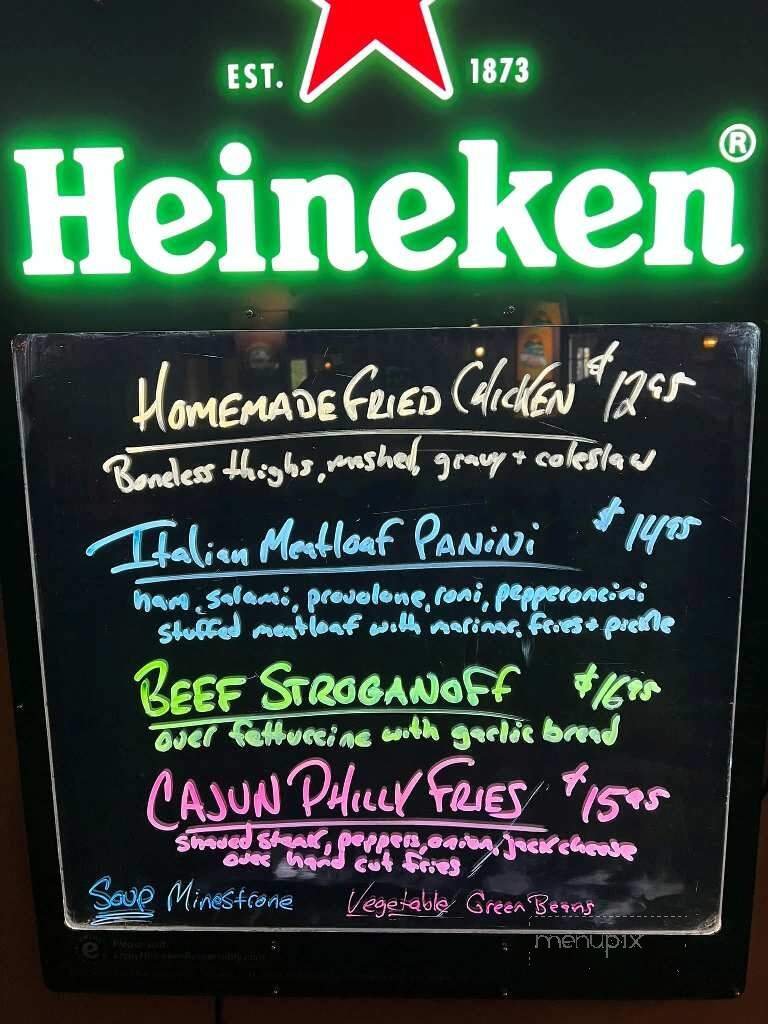 EST. 1873
Heineken®
HOMEMADE FRIED CHICKEN $12.95
Boneless thighs, mashed, gravy + coleslaw
Italian Meatloaf PANINI $14.95
ham, salami, provolone, roni, pepperoncini
stuffed meatloaf with marinar, fries + pickle
BEEF STROGANOFF $16.95
over fettuccine with garlic bread
CAJUN PHILLY FRIES $15.95
shaved steak, peppers, onion, jack cheese
over hand cut fries
Soup Minestrone Vegetable Green Beans
menupix